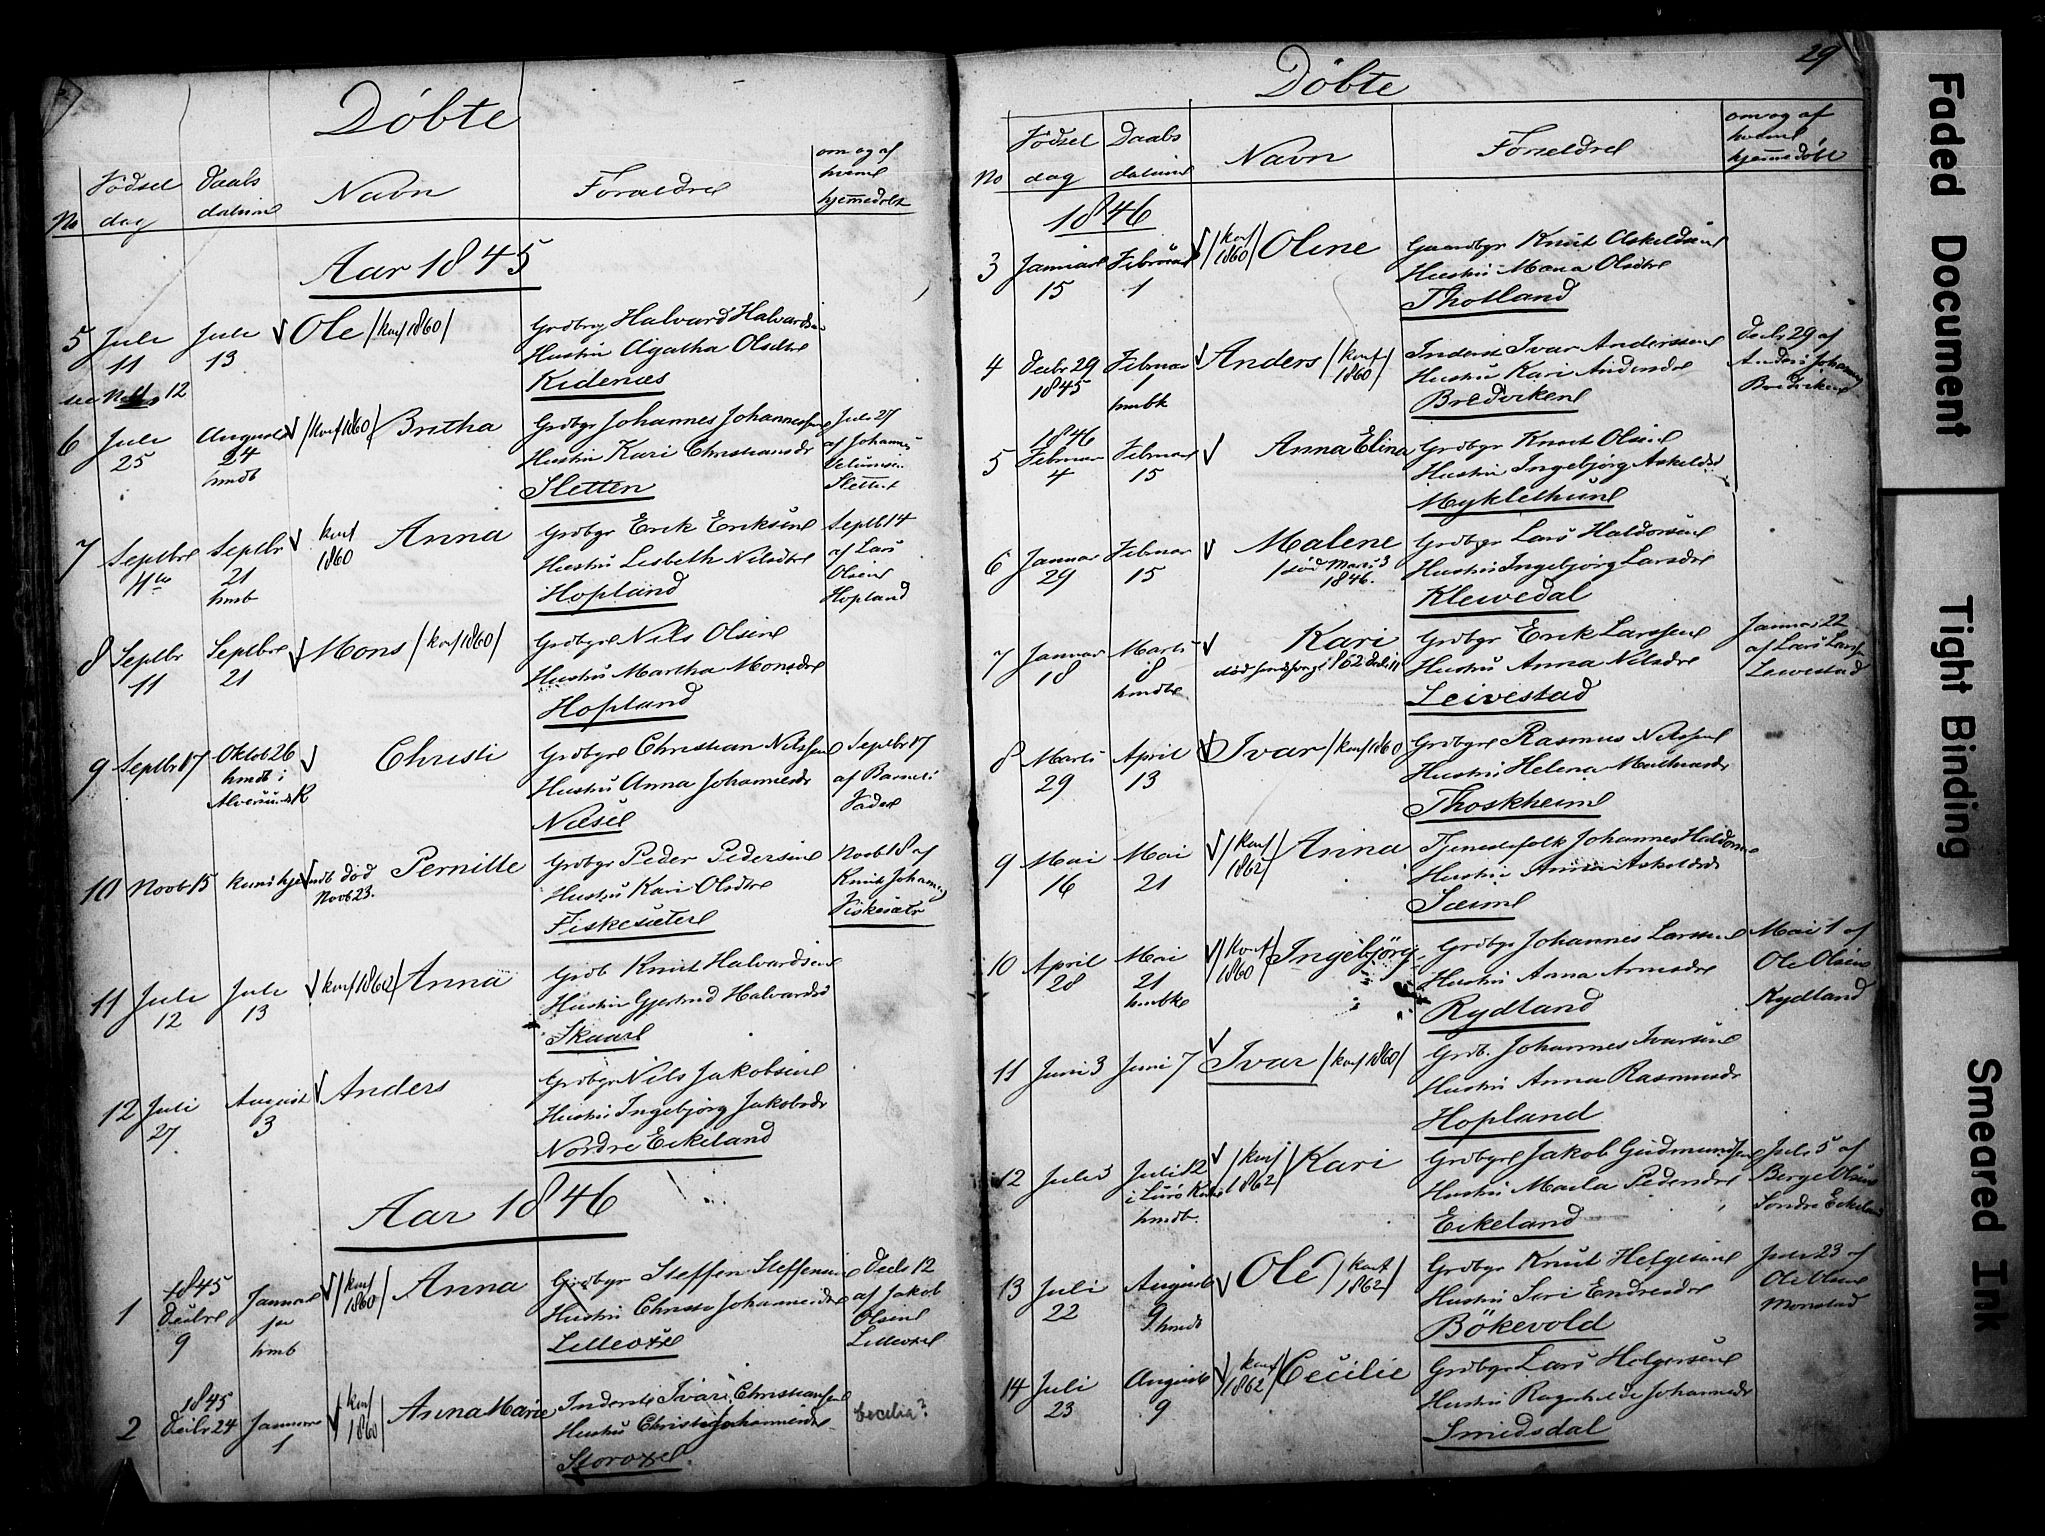 Döbte
No
Födsel
dag
Daabs
datum
Navn
Forældre
om og af
hvem
hjemmedöbt
Aar 1845
5 Juli
11
Juli
13
Ole /konf 1860/
Grdbrg Halvard Halvardsen
Hustru Agatha Olsdtr
Kidenæs
12
6 Juli
25
August
24
hmdt
/konf 1860/ Bretha
Grdbgr Johannes Johannessen
Hustru Kari Christiansdr
Sletten
Juli 27
af Johannes
Sletten
7 Septbr
11te
Septbr
21
hmb
konf
1860
Anna
Grdbgr Erik Eriksen
Hustru Lisbeth Nilsdtr
Hopland
Septb 14
af Lars
Olsen
Hopland
8 Septbr
11
Septbr
21
Mons /konf 1860/
Grdbgr Nils Olsen
Hustru Martha Monsdtr
Hopland
9 Septbr 17
Oktob 26
hmdt i
Alversund K
Christi
Grdbgr Christian Nilssen
Hustru Anna Johannesdr
Næse
Septbr 17
af Barnets
Fader
10 Novb 15
kuns hjemdt död
Novb 23.
Pernille
Grdbgr Peder Pedersen
Hustru Kari Olsdtr
Fiskesæter
Novb 18 af
Knut Johannes
Fiskesætr
11 Juli
12
Juli
13
/konf 1862/ Anna
Grdb Knut Halvardsen
Hustru Gjertrud Halvardsd
Skaar
12 Juli
27
August
3
Anders
Grdbgr Nils Jakobsen
Hustru Ingebjørg Jakobsdr
Nordre Eikeland
Aar 1846
1
1845
Decbr
9
Januar
hmb
/konf
1860/
Anna
Grdbgr Steffen Steffensen
Hustru Christi Johannesdtr
Lilleoxel
Decb 12
af Jakob
Olsen
Lilleoxel
2
1845
Decbr 24
Januar
1
/konf
1860/
Anna Marie
Inderste Ivar Christiansen
Hustru Christi Johannesdtr
Storoxel
Cecilia?
29
Döbte
No
Födsel
dag
Daabs
datum
Navn
Forældre
om og af
hvem
hjemmedöbt
1846
3 Januar
15
Februar
1
/konf
1860/
Oline
Gaardbgr Knut Askeldsen
Hustru Mona Olsdtr
Thotland
4 Decbr 29
1845
Februar
1
hmbk
Anders /konf
1860/
Inderst Ivar Anderssen
Hustru Kari Andersdr
Bredviken
Decbr 29 af
Anders Johannes
Bredviken
5
1846
Februar
4
Februar
15
Anna Elina
Grdbgr Knut Olsen
Hustru Ingebjørg Askelds
Myklethun
6 Januar
29
Februar
15
Malene
/död Marts 3
1846.
Grdbgr Lars Haldorsen
Hustru Ingebjørg Larsdtr
Klewedal
7 Januar
18
Marts
8
hmdt
Kari
Grdbgr Erik Larssen
Hustru Anna Nilsdtr
Leivestad
Januar 22
af Lars Larssen
Leivestad
8 Marts
29
April
13
Ivar /konf 1860
Grdbgr Rasmus Nilssen
Hustru Helena
Thoskheim
9 Mai
16
Mai
21
/konf
1862/
Anna
Tjenestefolk Johannes Haldorsen
Hustru Anna Askeldsdr
Sæim
10 April
28
Mai
21
hmbk
/konf
1860/
Ingebjörg
Grdbgr Johannes Larssen
Hustru Anna Arnesdtr
Rydland
Mai 1 af
Ole Olsen
Rydland
11 Juni 3
Juni 7
Ivar /konf 1860/
Grdb. Johannes Ivarsen
Hustru Anna Rasmusdr
Hopland
12 Juli 3
Juli 12
hmdt.
/konf
1862/
Kari
Grdbgr Jakob Gudmundsen
Hustru Marta Pedersdtr
Eikeland
Juli 5 af
Berge Olsen
Söndre Eikeland
13 Juli
22
August
9
hmdt
Ole /konf
1862/
Grdbgr Knut Helgesen
Hustru Siri Endresdtr
Bökevold
Juli 23 af
Ole Olsen
Monstad
14 Juli
23
August
9
/konf
1862/
Cecilie
Grdbgr Lars Holgersen
Hustru Ragnhilde Johannesdr
Smidsdal
Faded Document
Tight Binding
Smeared Ink